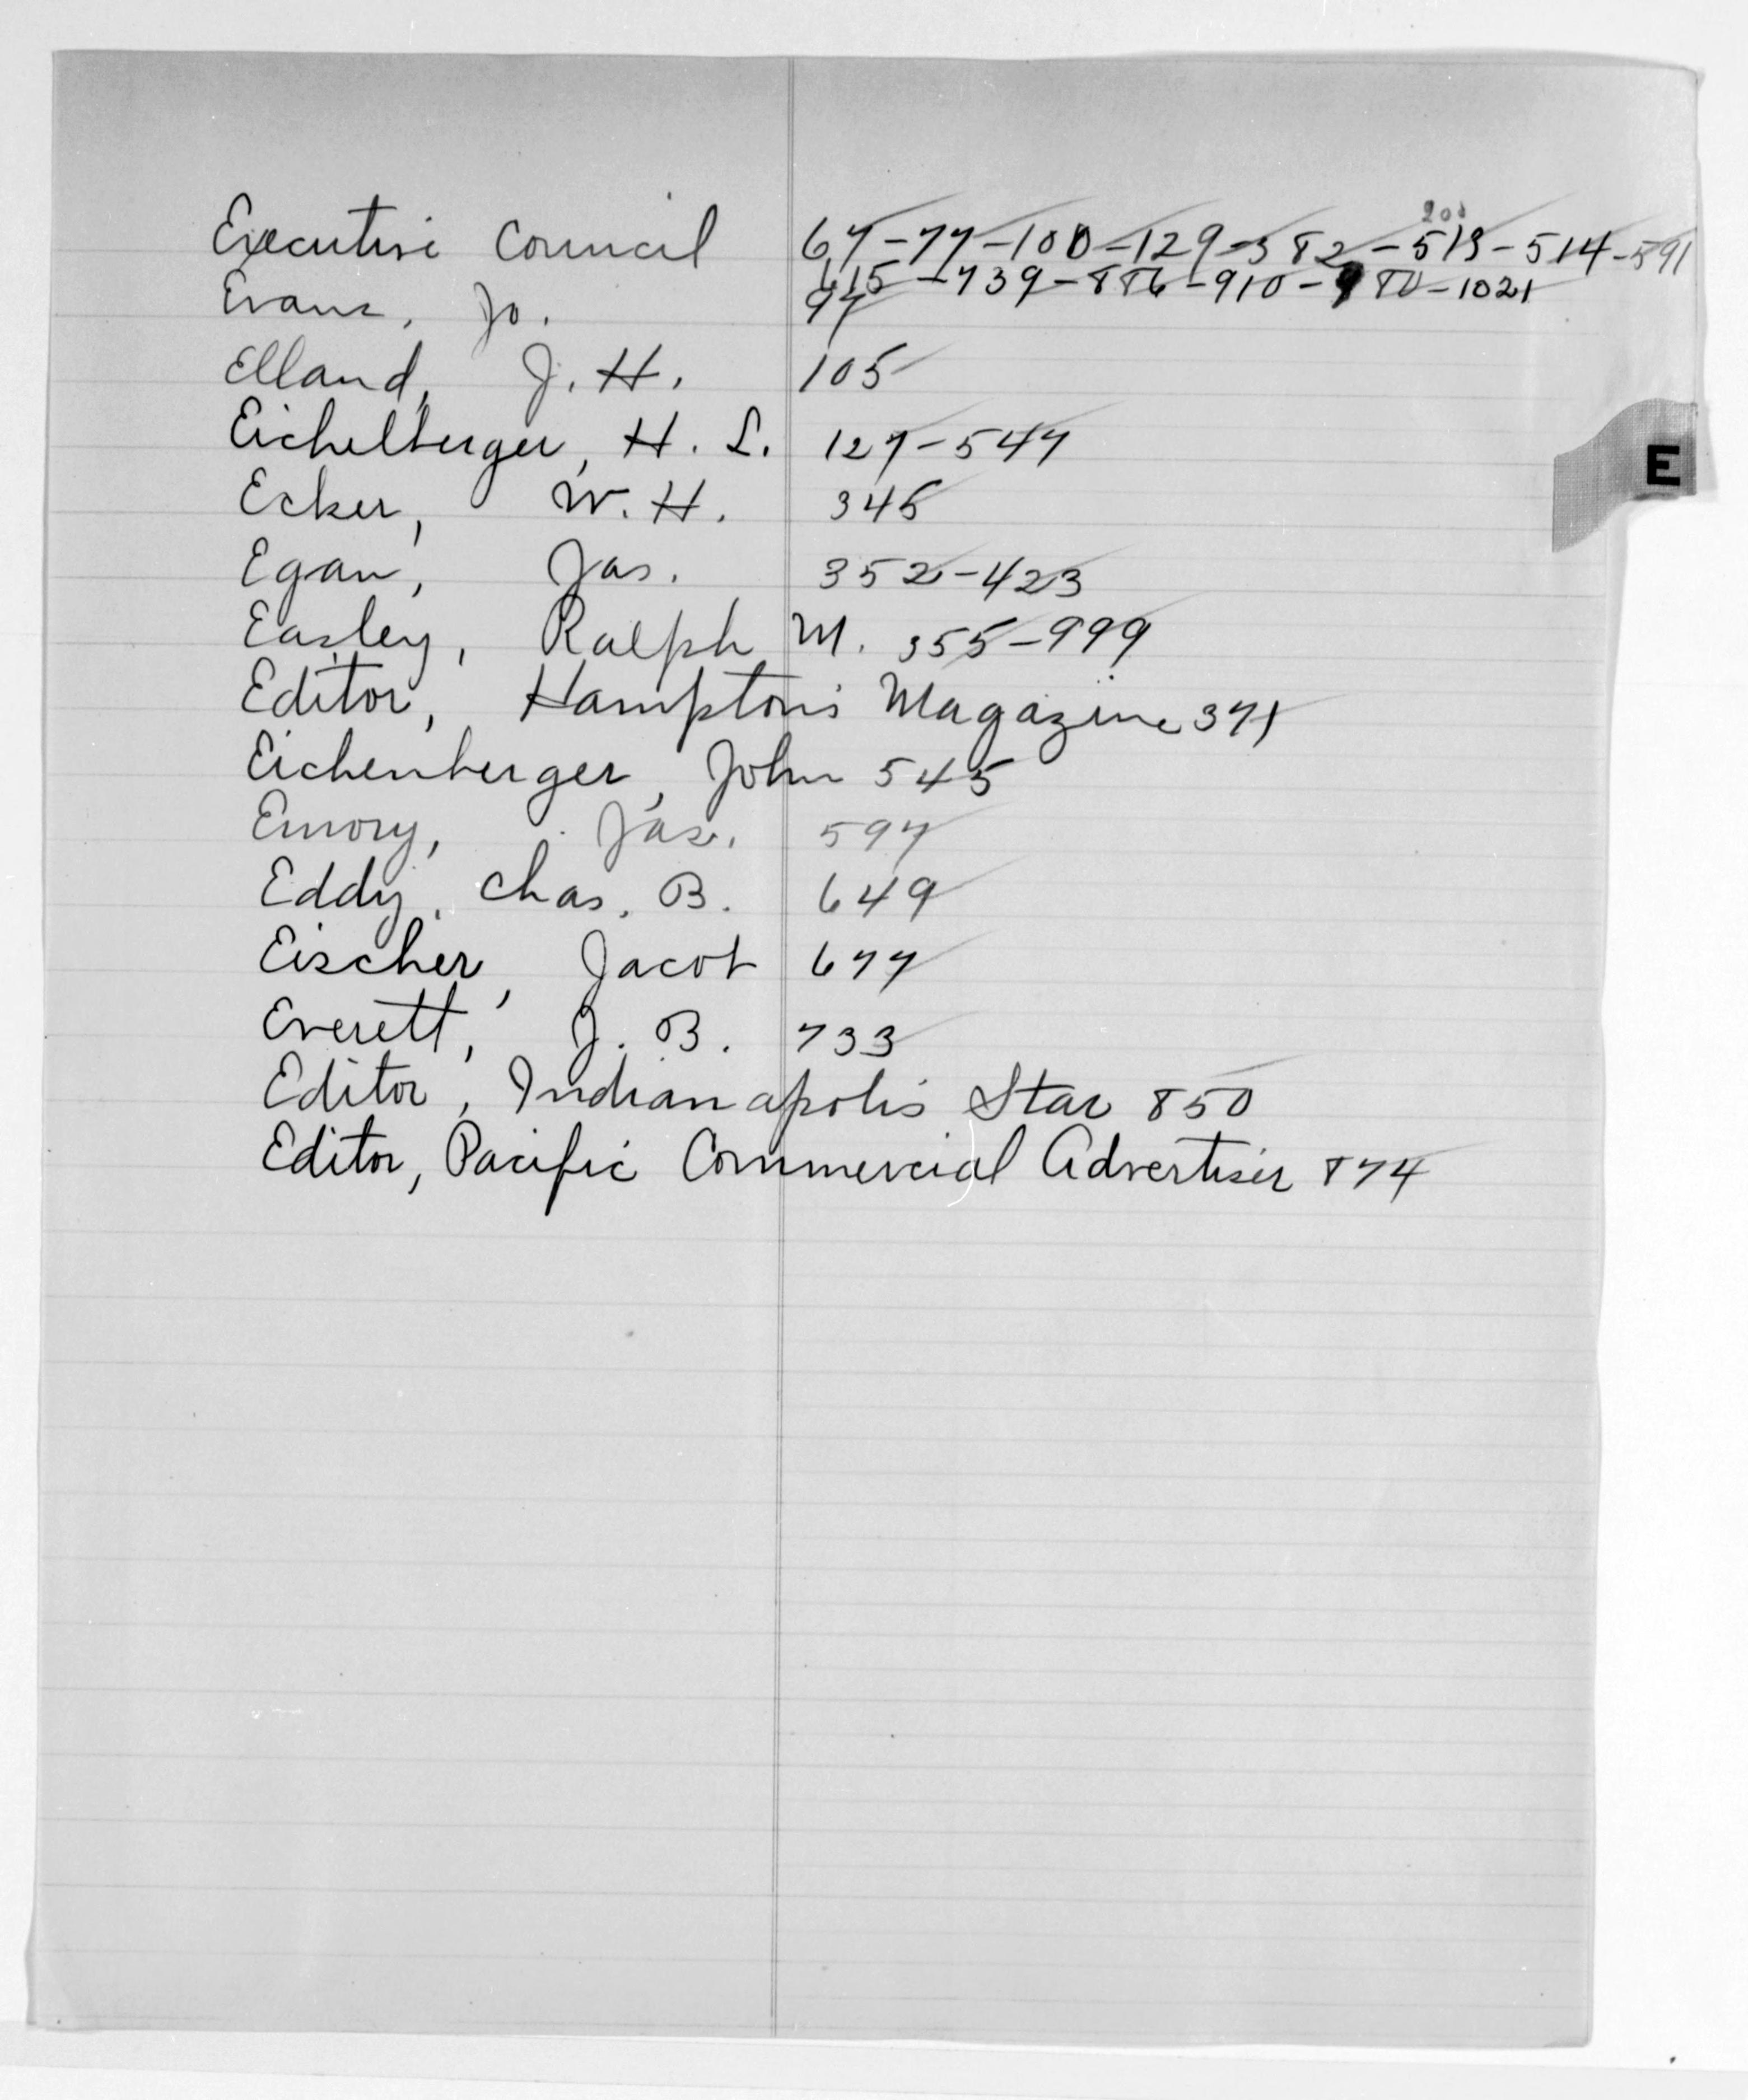 Executive Council 67-77-100-129-382-513-514-591
615-739-886-910-980-1021
Evans, Jo. 97
Elland, J. H. 105
Eichelberger, H. L. 127-547
E
Ecker, W. H. 345
Egan, Jas. 352-423
Easley, Ralph M. 355-999
Editor, Hampton's Magazine 371
Eichenberger, John 545
Emory, Jas. 597
Eddy, Chas. B. 649
Eischer, Jacob 677
Everett, J. B. 733
Editor, Indianapolis Star 850
Editor, Pacific Commercial Advertiser 874